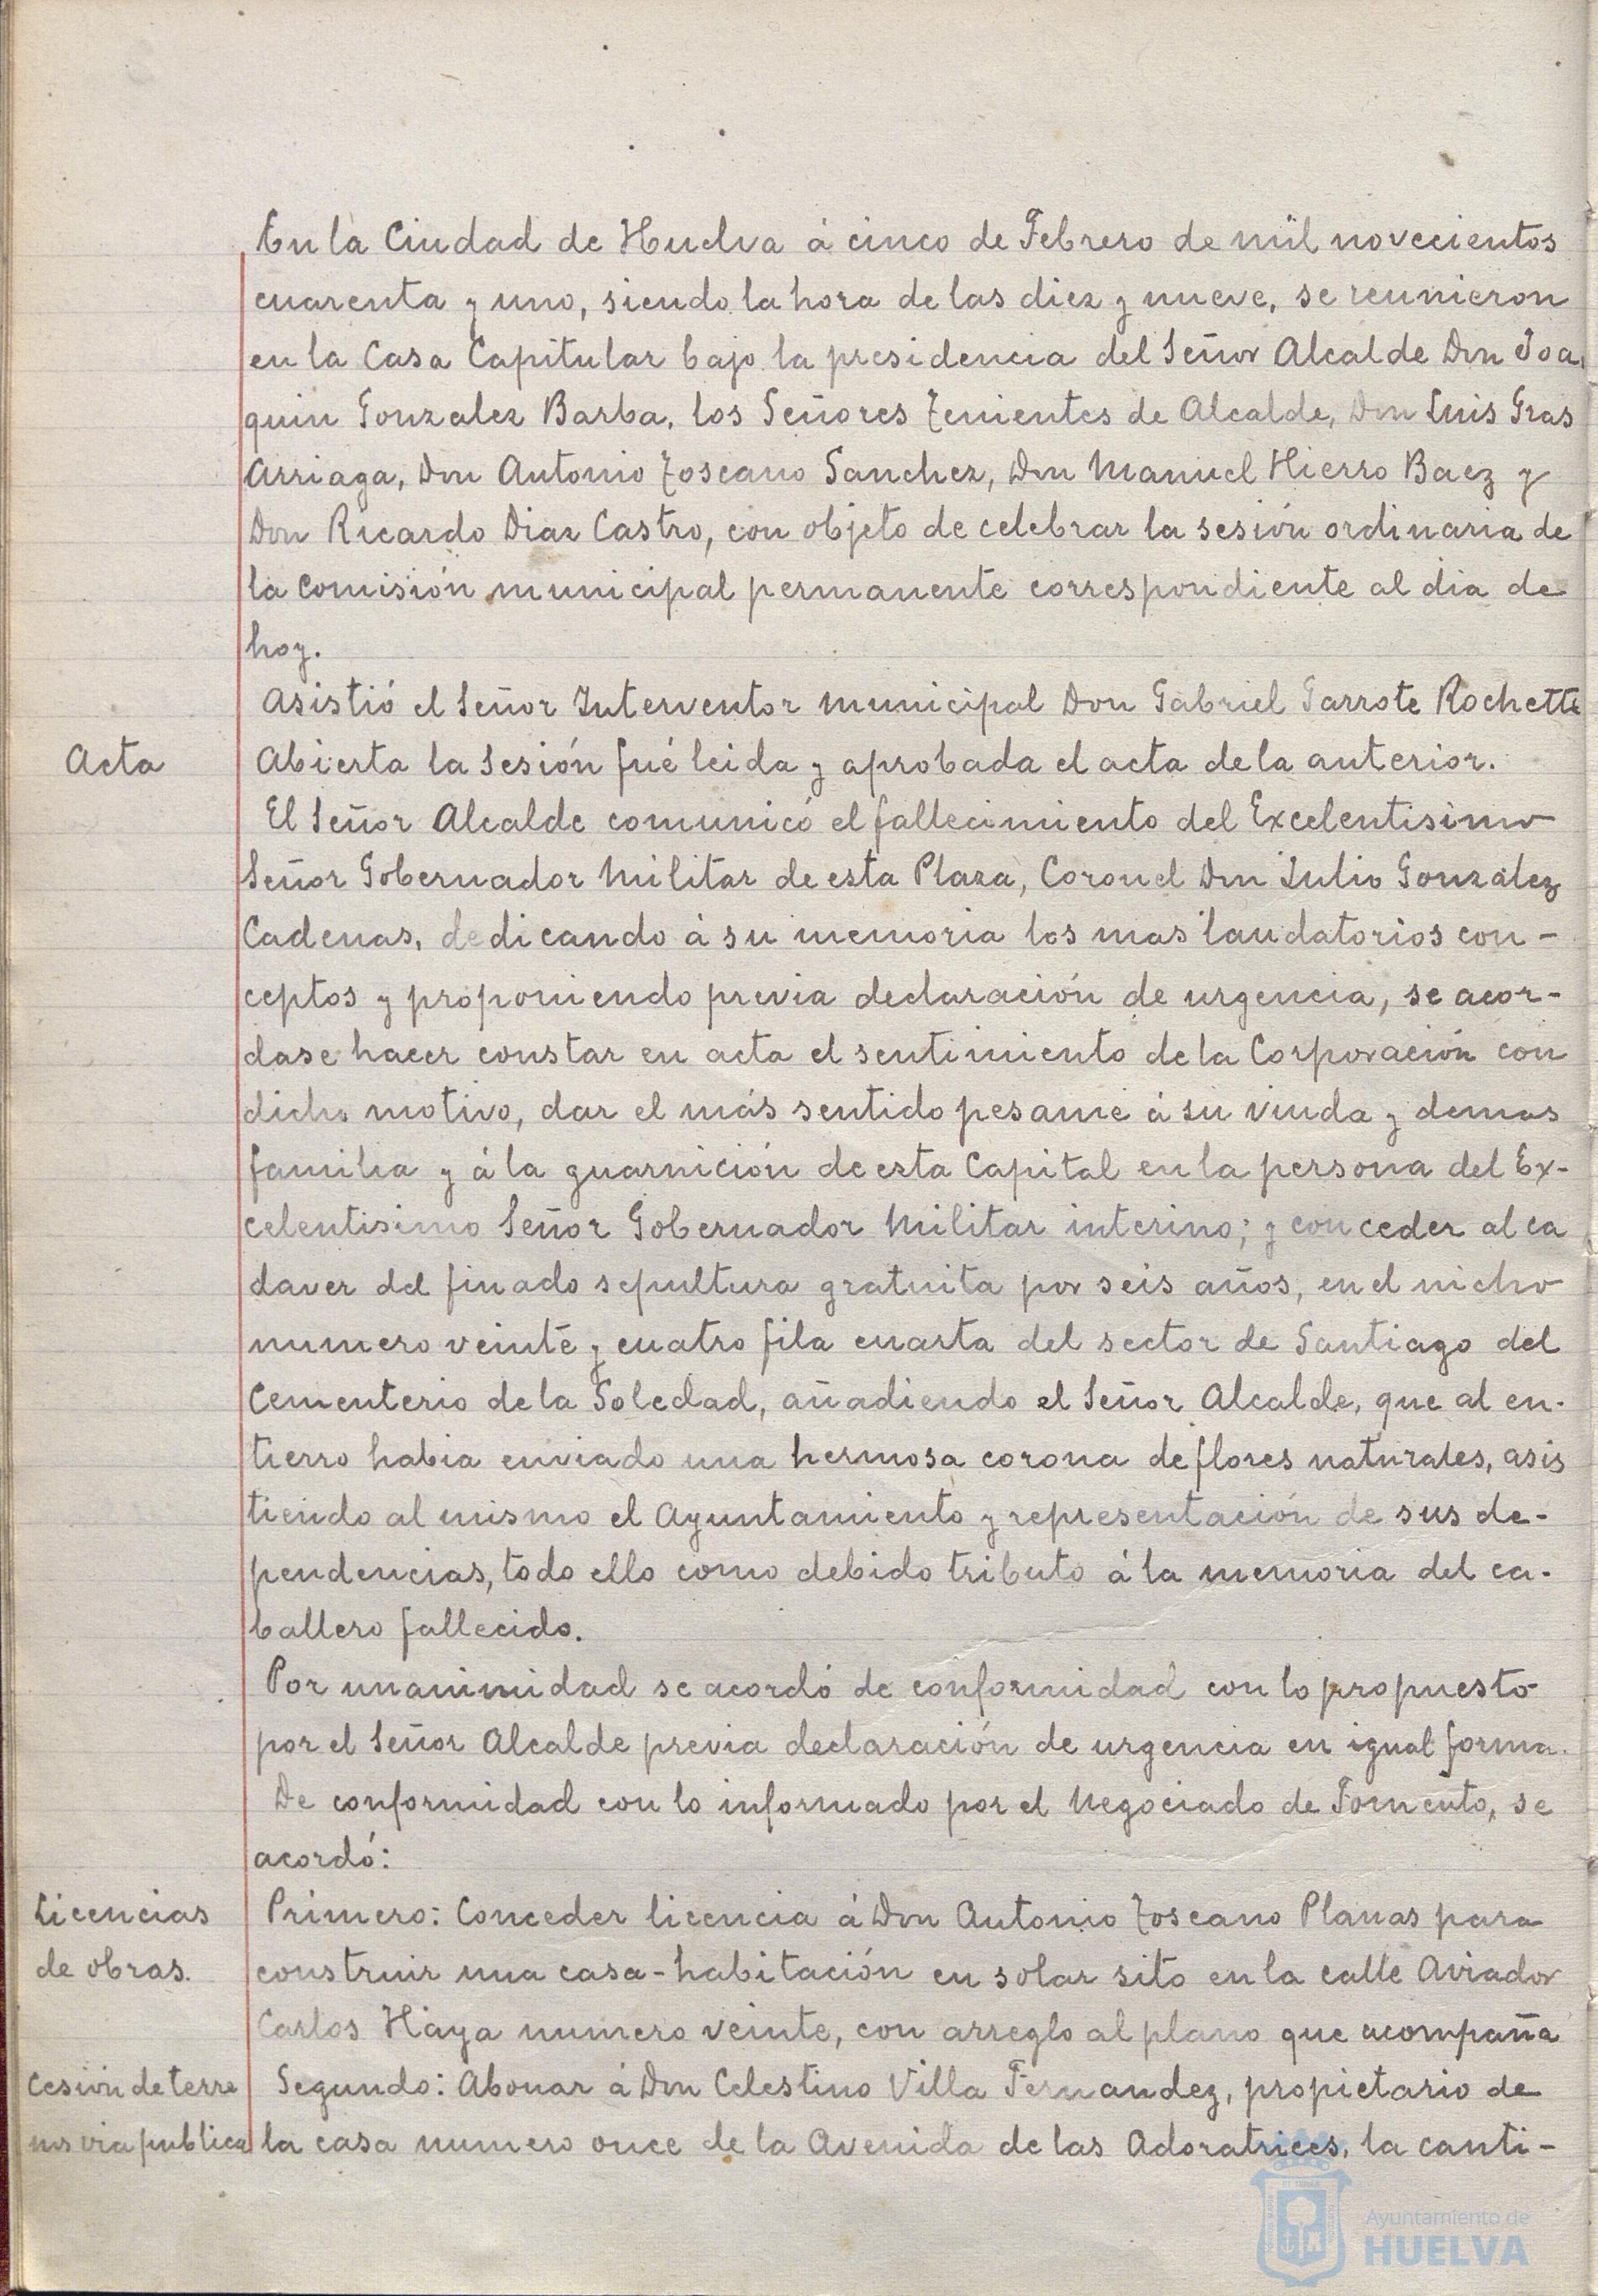 En la Ciudad de Huelva á cinco de Febrero de mil novecientos
cuarenta y uno, siendo la hora de las diez y nueve, se reunieron
en la Casa Capitular bajo la presidencia del Señor Alcalde Don Joa,
quin Gonzalez Barba, los Señores Tenientes de Alcalde, Don Luis Gras
Arriaga, Don Antonio Toscano Sanchez, Don Manuel Hierro Baez y
Don Ricardo Diaz Castro, con objeto de celebrar la sesión ordinaria de
la Comisión municipal permanente correspondiente al dia de
hoy.
Asistió el Señor Interventor municipal Don Gabriel Garrote Rochette
Acta
Abierta la Sesión fué leida y aprobada el acta de la anterior.
El Señor Alcalde comunicó el fallecimiento del Excelentisimo
Señor Gobernador Militar de esta Plaza, Coronel Don Julio González
Cadenas, dedicando á su memoria los mas laudatorios con-
ceptos y proponiendo previa declaración de urgencia, se acor-
dase hacer constar en acta el sentimiento de la Corporación con
dicho motivo, dar el más sentido pesame á su viuda y demas
familia y á la guarnición de esta Capital en la persona del Ex-
celentisimo Señor Gobernador Militar interino; y conceder al ca
daver del finado sepultura gratuita por seis años, en el nicho
numero veinte y cuatro fila cuarta del sector de Santiago del
Cementerio de la Soledad, añadiendo el Señor Alcalde, que al en-
tierro habia enviado una hermosa corona de flores naturales, asis
tiendo al mismo el Ayuntamiento y representación de sus de-
pendencias, todo ello como debido tributo á la memoria del ca-
ballero fallecido.
Por unanimidad se acordó de conformidad con lo propuesto
por el Señor Alcalde previa declaración de urgencia en igual forma.
De conformidad con lo informado por el Negociado de Fomento, se
acordó:
Licencias
de obras.
Primero: Conceder licencia á Don Antonio Toscano Planas para
construir una casa-habitación en solar sito en la calle Aviador
Carlos Haya numero veinte, con arreglo al plano que acompaña
Cesión de terre
nos via publica
Segundo: Abonar á Don Celestino Villa Fernandez, propietario de
la casa numero once de la Avenida de las Adoratrices, la canti-
Ayuntamiento de
HUELVA